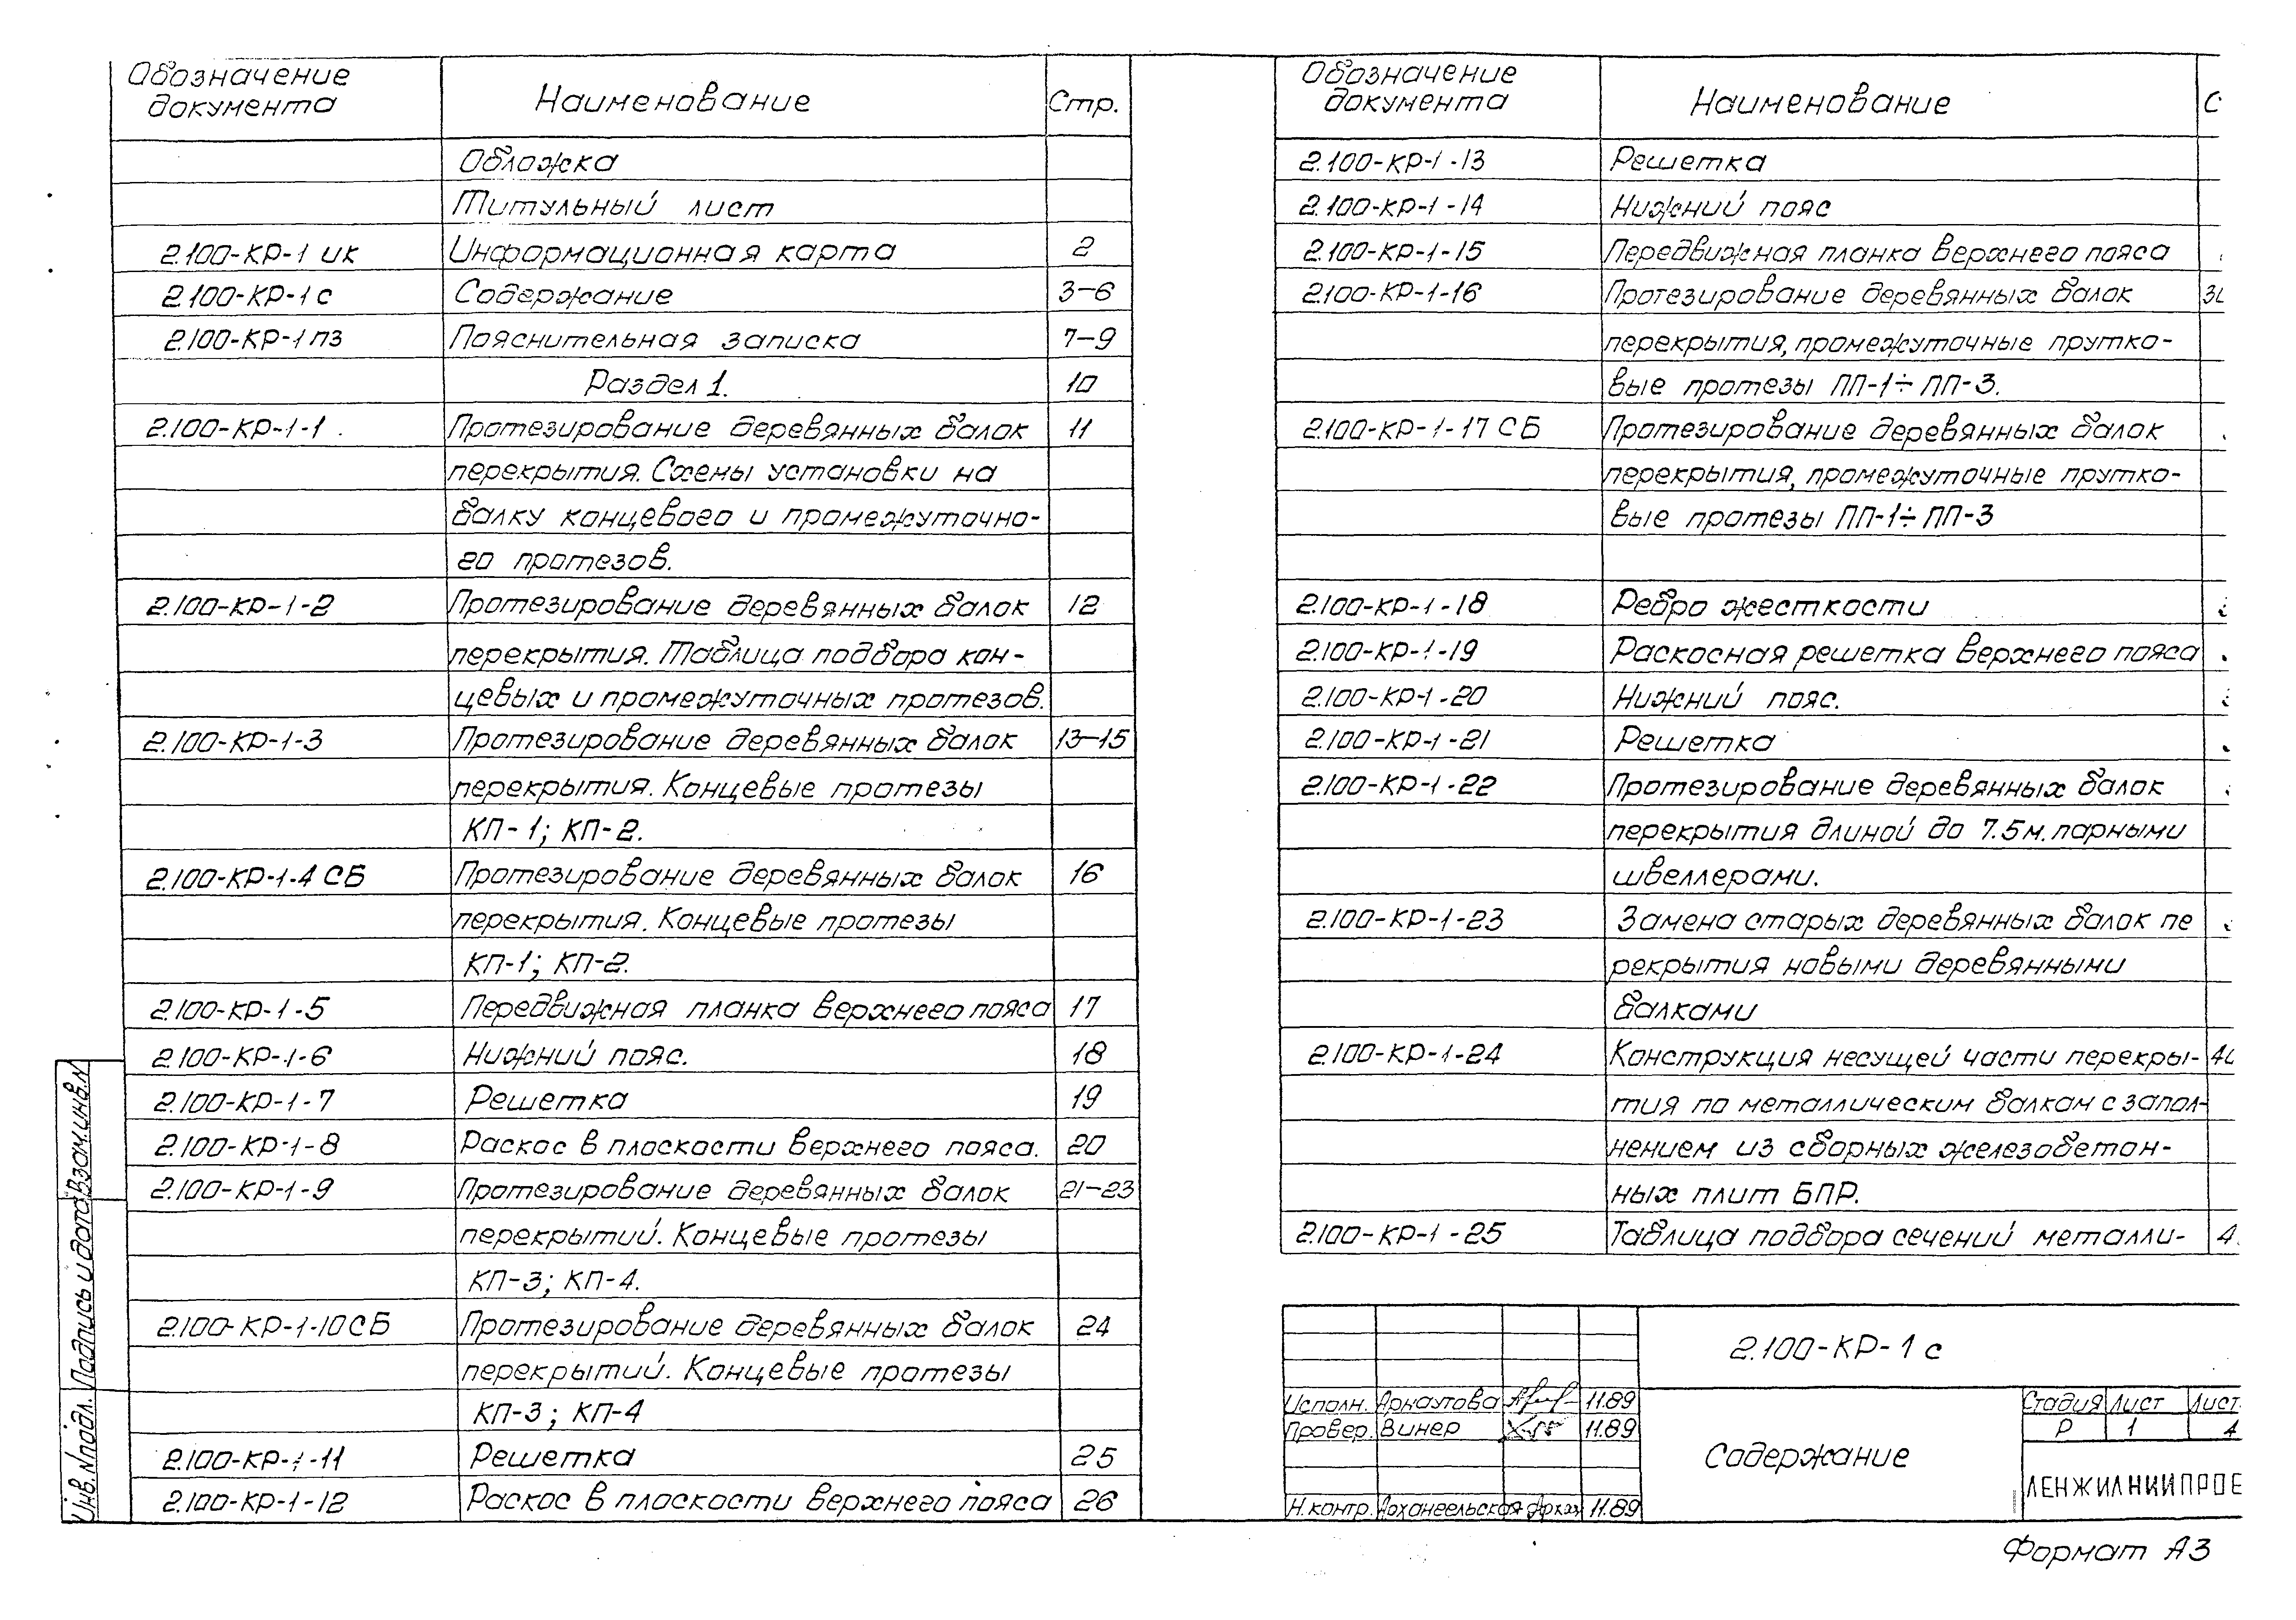 Обозначение документа Наименование Стр.
Обложка
Титульный лист
2.100-КР-1 ик Информационная карта 2
2.100-КР-1 с Содержание 3-6
2.100-КР-1 пз Пояснительная записка 7-9
Раздел 1. 10
2.100-КР-1-1 Протезирование деревянных балок 11
перекрытия. Схемы установки на
балку концевого и промежуточно-
го протезов.
2.100-КР-1-2 Протезирование деревянных балок 12
перекрытия. Таблица подбора кон-
цевых и промежуточных протезов.
2.100-КР-1-3 Протезирование деревянных балок 13-15
перекрытия. Концевые протезы
КП-1; КП-2.
2.100-КР-1-4 СБ Протезирование деревянных балок 16
перекрытия. Концевые протезы
КП-1; КП-2.
2.100-КР-1-5 Передвижная планка верхнего пояса 17
2.100-КР-1-6 Нижний пояс. 18
2.100-КР-1-7 Решетка 19
2.100-КР-1-8 Раскос в плоскости верхнего пояса. 20
2.100-КР-1-9 Протезирование деревянных балок 21-23
перекрытий. Концевые протезы
КП-3; КП-4.
2.100-КР-1-10 СБ Протезирование деревянных балок 24
перекрытий. Концевые протезы
КП-3; КП-4
2.100-КР-1-11 Решетка 25
2.100-КР-1-12 Раскос в плоскости верхнего пояса 26
Обозначение документа Наименование С
2.100-КР-1-13 Решетка
2.100-КР-1-14 Нижний пояс
2.100-КР-1-15 Передвижная планка верхнего пояса
2.100-КР-1-16 Протезирование деревянных балок
перекрытия, промежуточные прутко-
вые протезы ПП-1÷ПП-3.
2.100-КР-1-17 СБ Протезирование деревянных балок
перекрытия, промежуточные прутко-
вые протезы ПП-1÷ПП-3
2.100-КР-1-18 Ребро жесткости
2.100-КР-1-19 Раскосная решетка верхнего пояса
2.100-КР-1-20 Нижний пояс.
2.100-КР-1-21 Решетка
2.100-КР-1-22 Протезирование деревянных балок
перекрытия длиной до 7.5м. парными
швеллерами.
2.100-КР-1-23 Замена старых деревянных балок пе
рекрытия новыми деревянными
балками
2.100-КР-1-24 Конструкция несущей части перекры-
тия по металлическим балкам с запол-
нением из сборных железобетон-
ных плит БПР.
2.100-КР-1-25 Таблица подбора сечений металли- 4
2.100-КР-1 с
Исполн. Арнаутова 11.89
Провер. Винер 11.89
Н.контр. Архангельская 11.89
Содержание
Стадия Лист Лист
Р 1 4
ЛЕНЖИЛНИИПРОЕ
Формат А3
Взам.инв.N
Подпись и дата
Инв.Nподл.